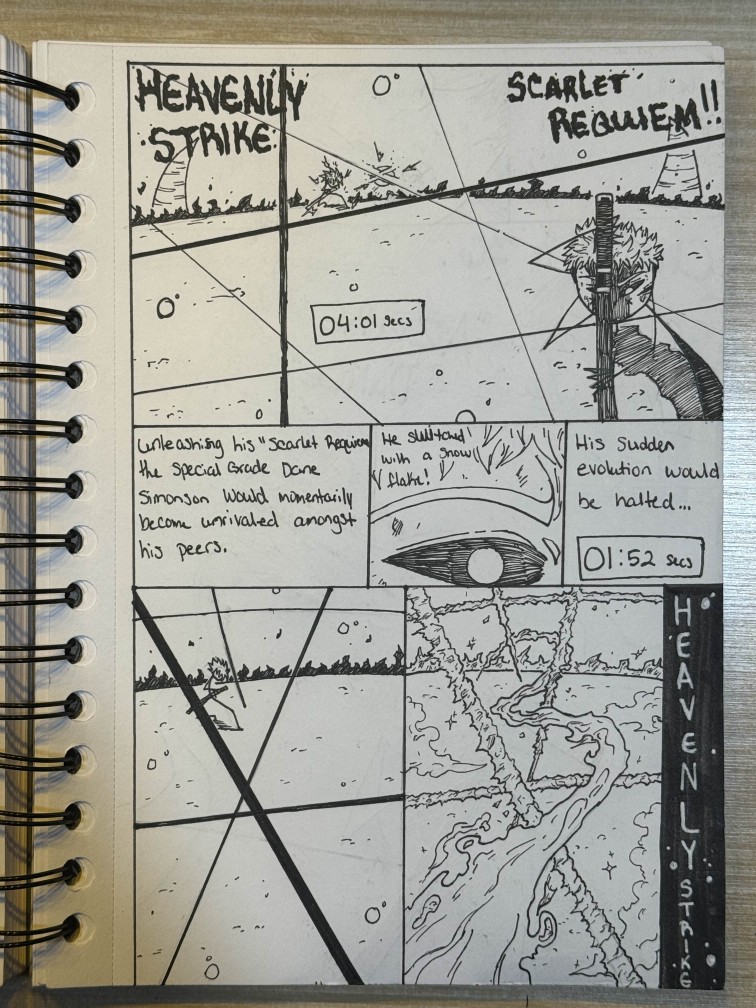 HEAVENLY
STRIKE
SCARLET
REQUIEM!!
04:01 secs
Unleashing his "Scarlet Requiem
the Special Grade Dane
Simonson would momentarily
become unrivaled amongst
his peers.
He switched
with a snow
flake!
His sudden
evolution would
be halted...
01:52 secs
HEAVENLY STRIKE